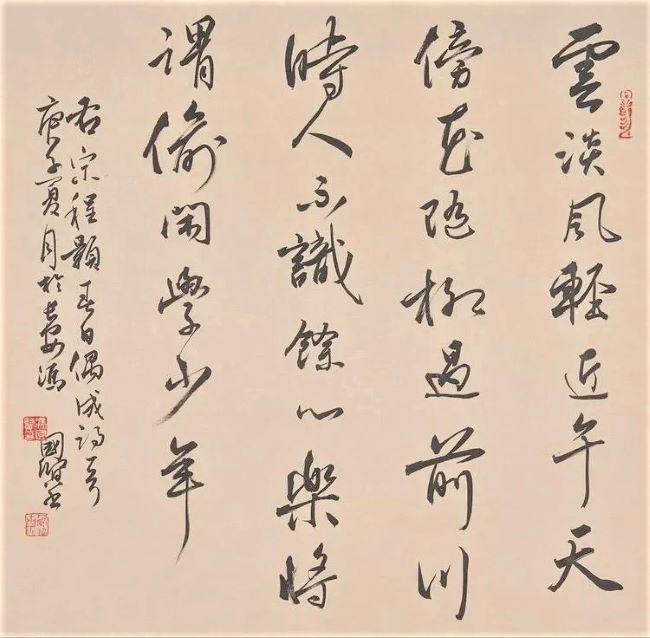 雲淡風輕近午天
傍花隨柳過前川
時人不識餘心樂將
謂偷閑學少年
右宋程顥春日偶成詩一首
庚子夏月於長安馮國語書